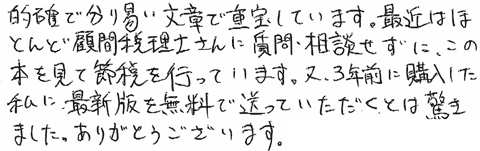 的確で分り易い文章で重宝しています。最近はほ
とんど顧問税理士さんに質問・相談せずに、この
本を見て節税を行っています。又、3年前に購入した
私に最新版を無料で送っていただくとは驚き
ました。ありがとうございます。